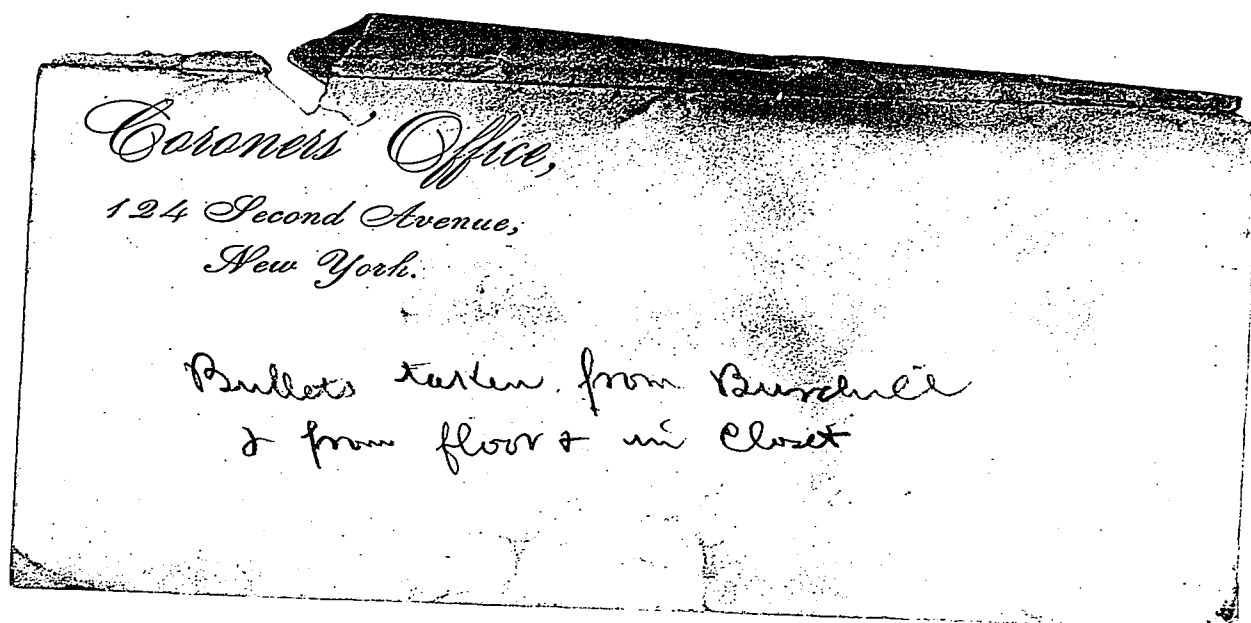 Coroners' Office,
124 Second Avenue,
New York.
Bullets taken from Burchell
& from floor & in Closet